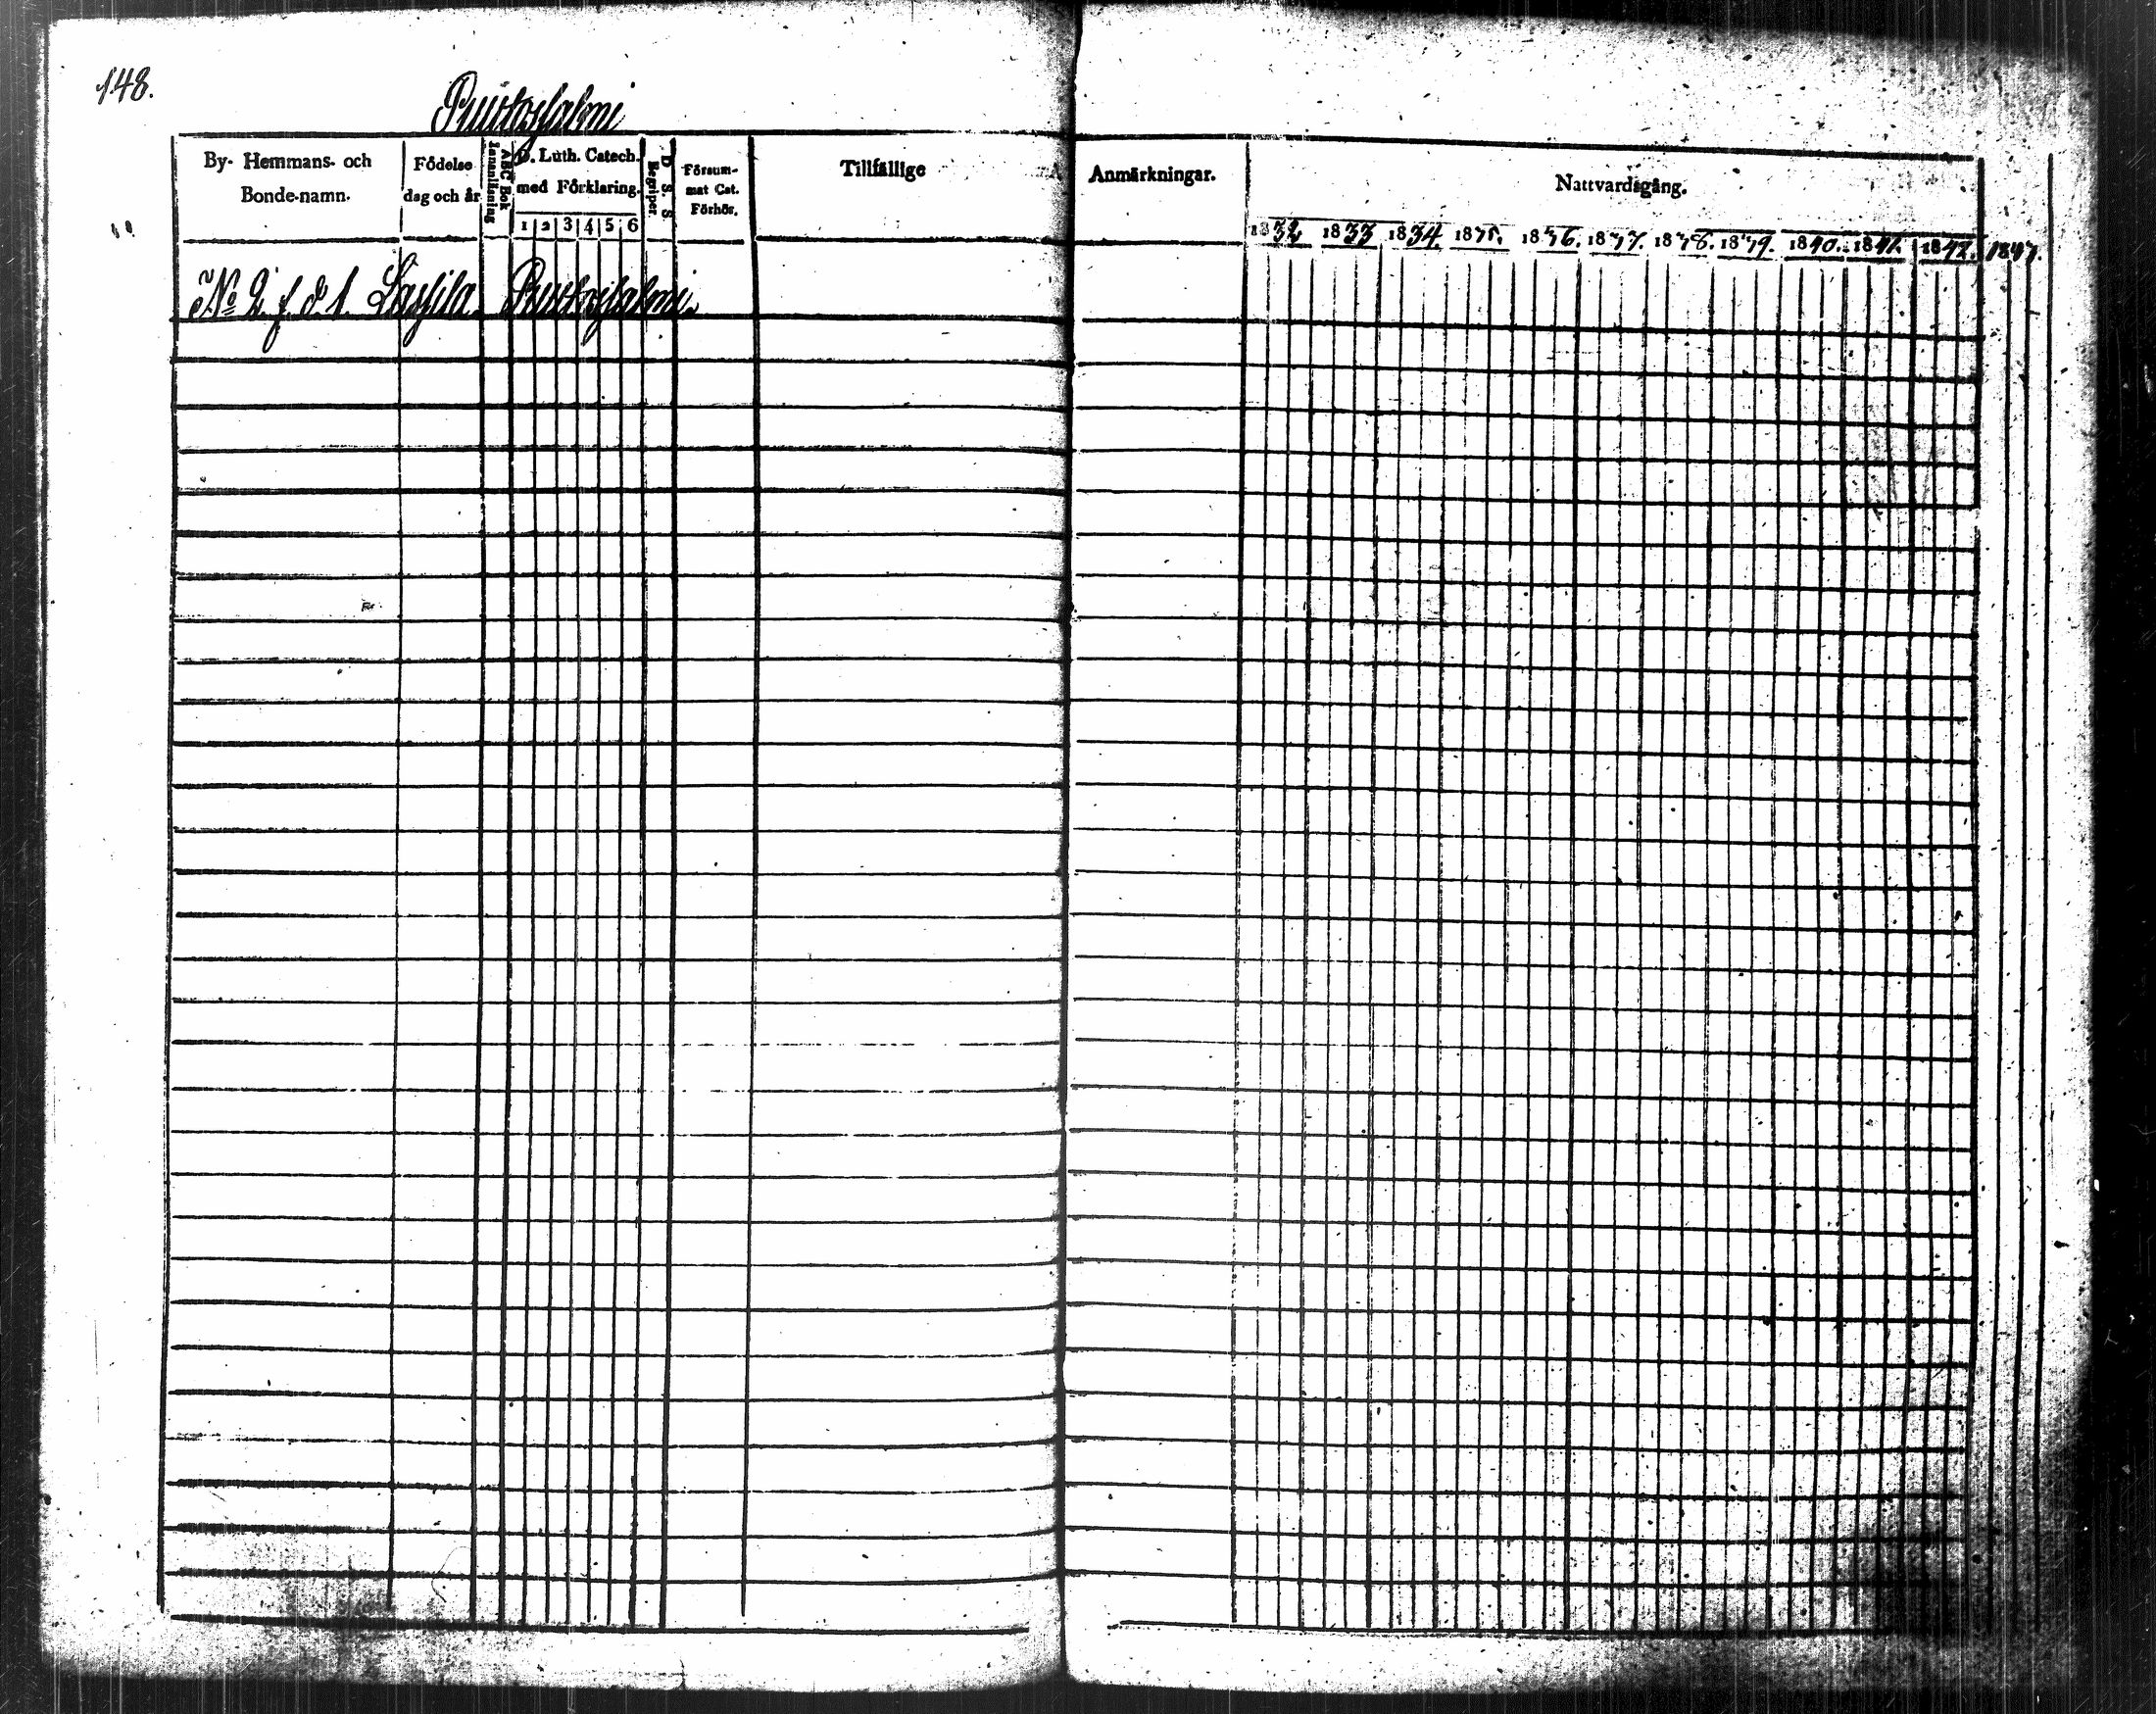 148.
Puutosjalmi
By- Hemmans- och Bonde-namn.
Födelse dag och år
ABC Bok Innanläsning
D. Luth. Catech. med Förklaring.
1 2 3 4 5 6
D. S. S. Begriper
Försum- mat Cat. Förhör.
Tillfällige
Anmärkningar.
Nattvardsgång.
1832 1833 1834. 1835. 1836. 1837. 1838. 1839. 1840. 1841. 1842. 1843.
No 2. f. d. 1. Lassila Puutosjalmi.